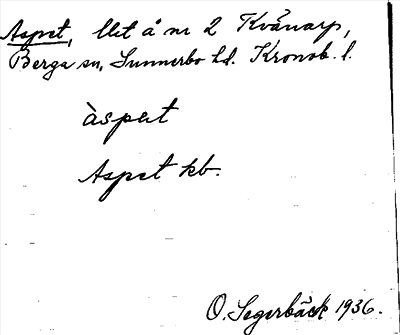 Aspet, llet å nr 2 Kvänarp,
Berga sn, Sunnerbo hd. Kronob. l.
àspet
Aspet kb.
O. Segerbäck 1936.